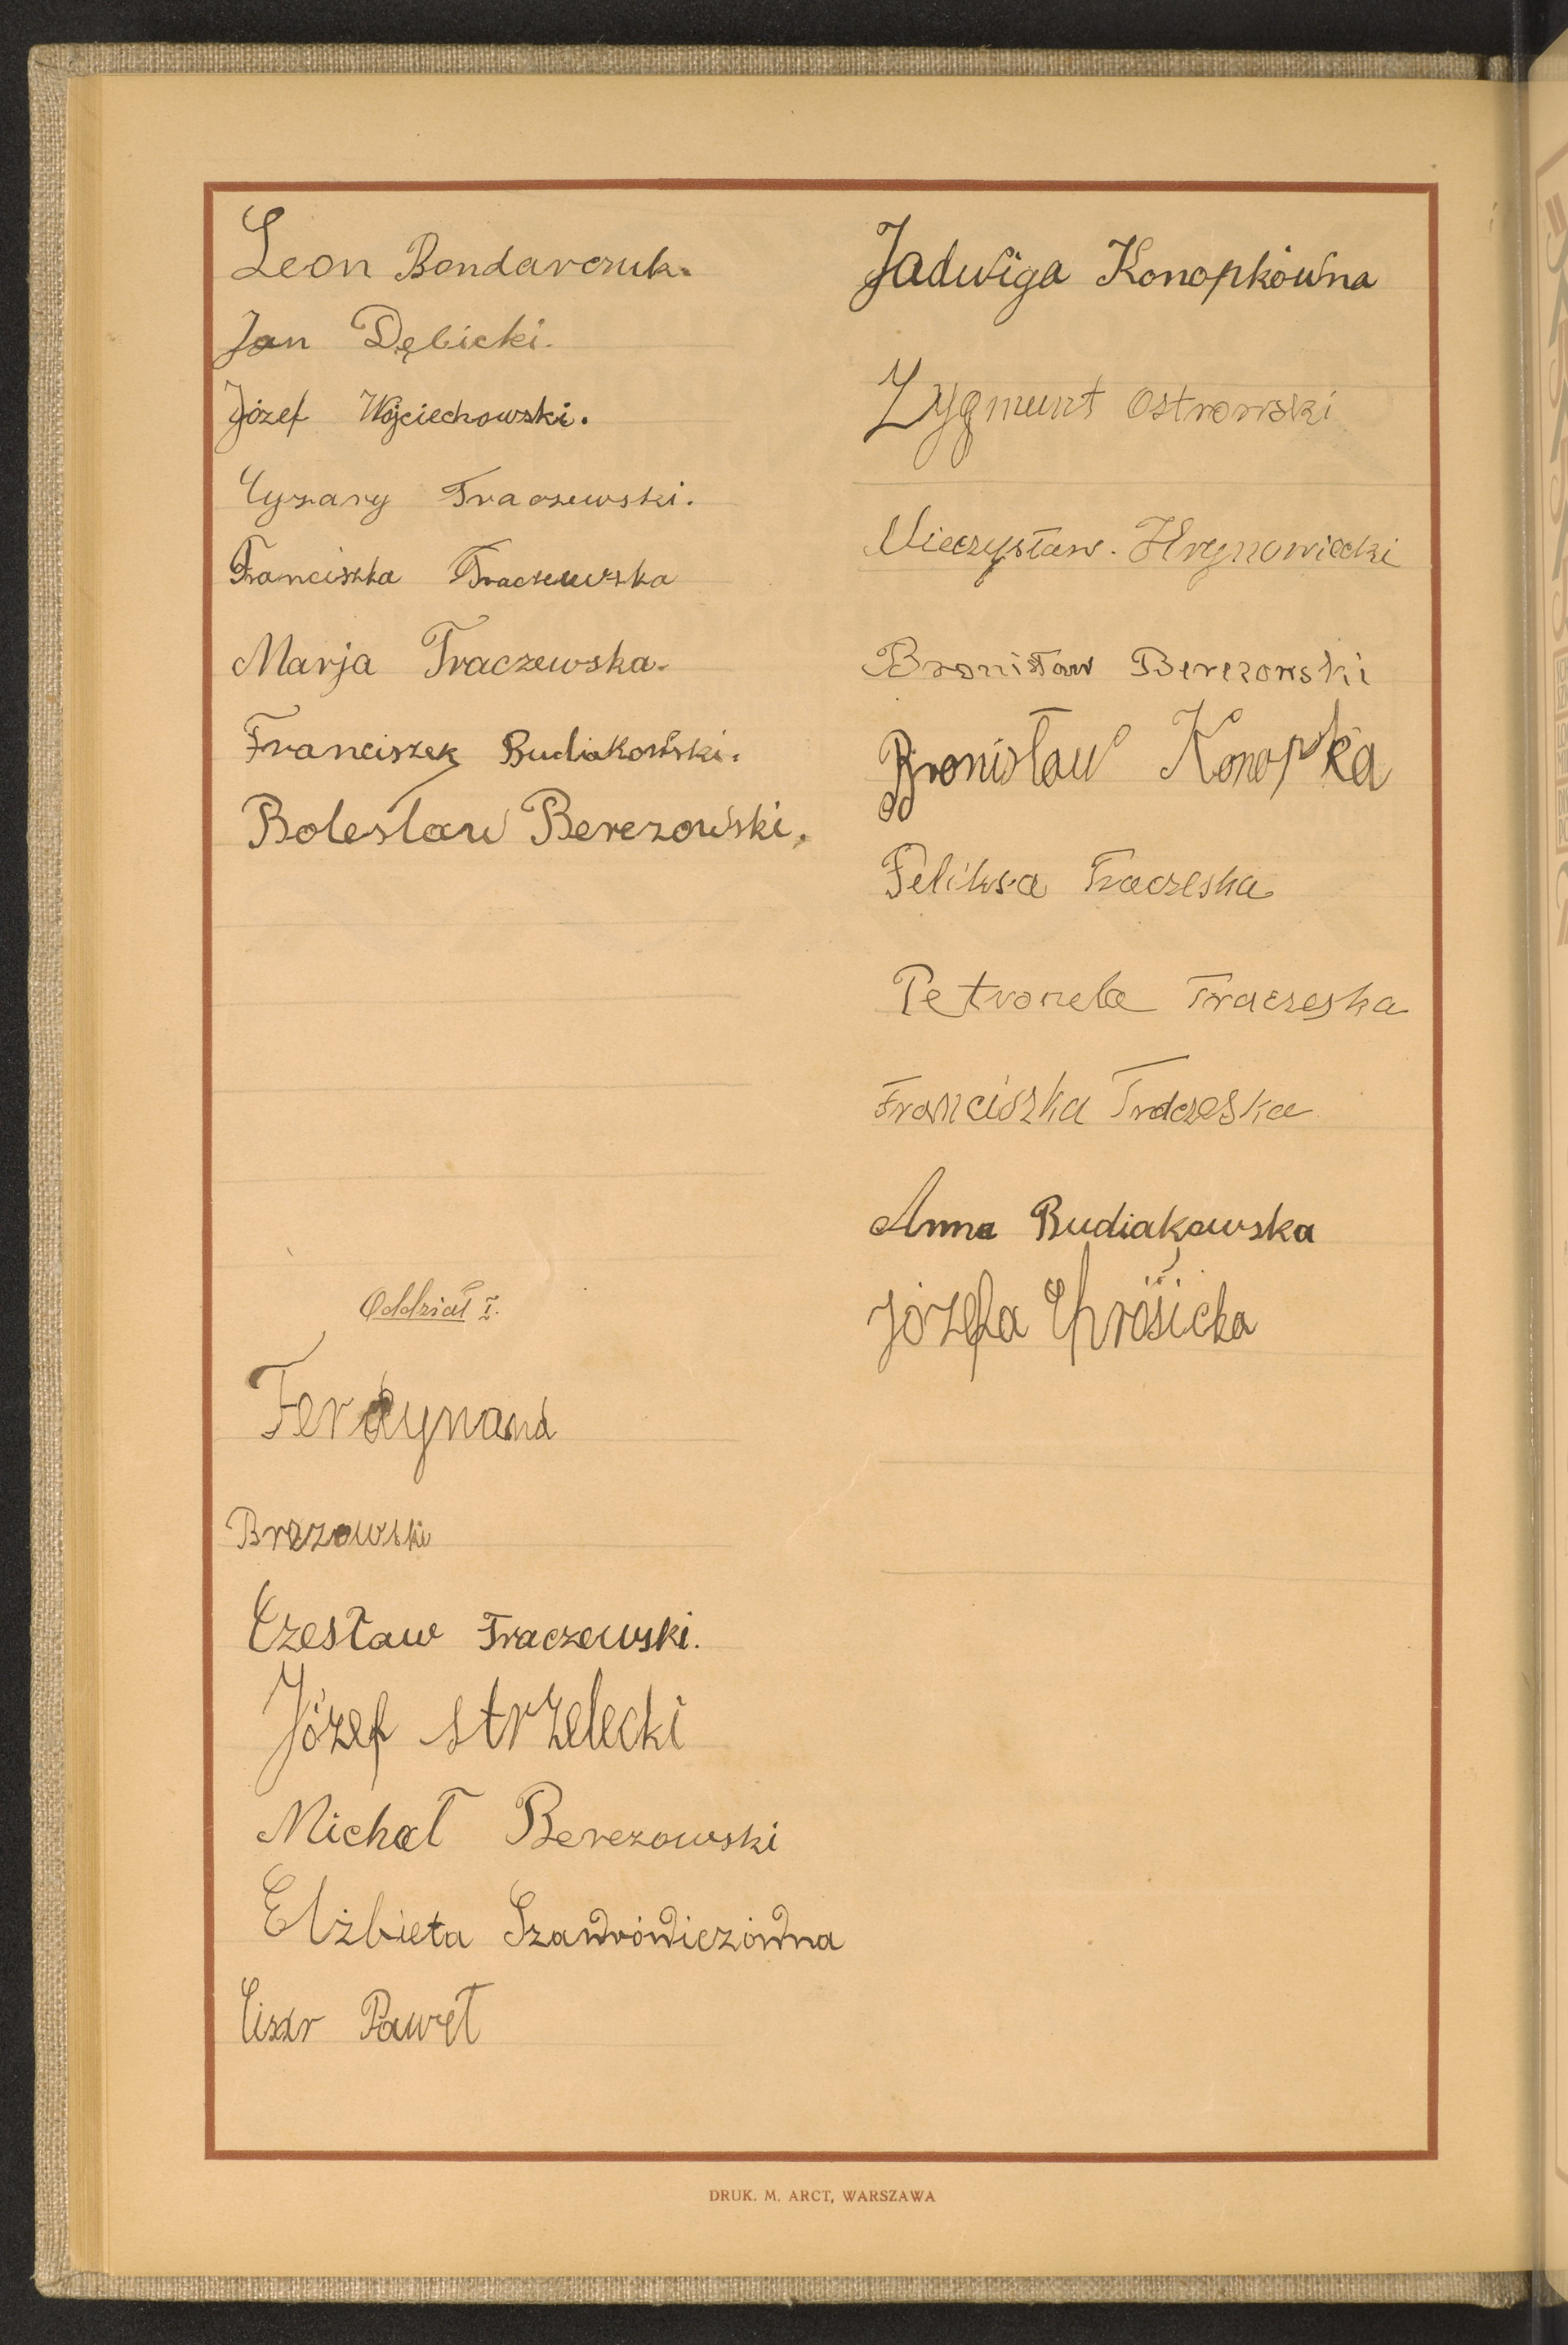 Leon Bondarczuk.
Jan Dębicki.
Józef Wojciechowski.
Cyzary Traczewski.
Franciszka Traczewska
Marja Traczewska.
Franciszek Budiakowski.
Bolesław Berezowski.
Oddział I.
Ferdynand
Brezowski
Czesław Traczewski.
Józef strzelecki
Michał Berezowski
Elżbieta Szawrowiczówna
Paweł
Jadwiga Konopkówna
Zygmunt Ostrowski
Mieczysław. Hrynowiecki
Bronisław Berezowski
Bronisław Konopka
Feliksa Traczeska
Petronela Traczeska
Franciszka Traczeska
Anna Budiakowska
Józefa Chrósicka
DRUK. M. ARCT, WARSZAWA